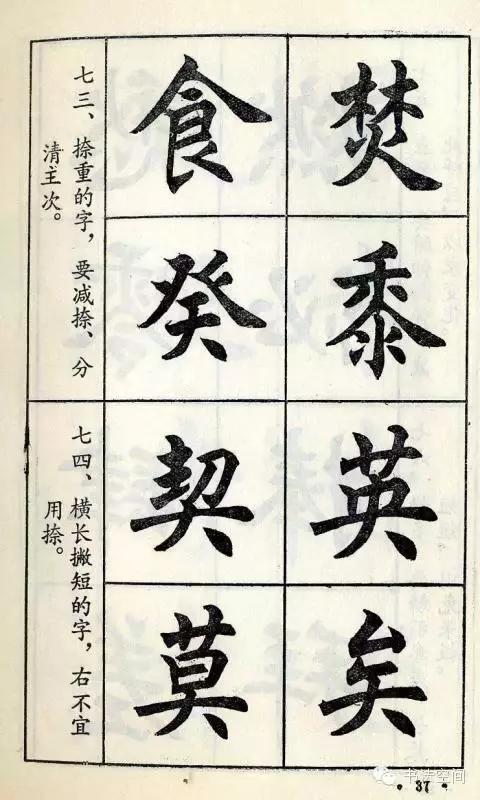 七三、捺重的字，要减捺、分
清主次。
焚 食
黍 癸
七四、横长撇短的字，右不宜
用捺。
英 契
矣 莫
书法空间
·37·